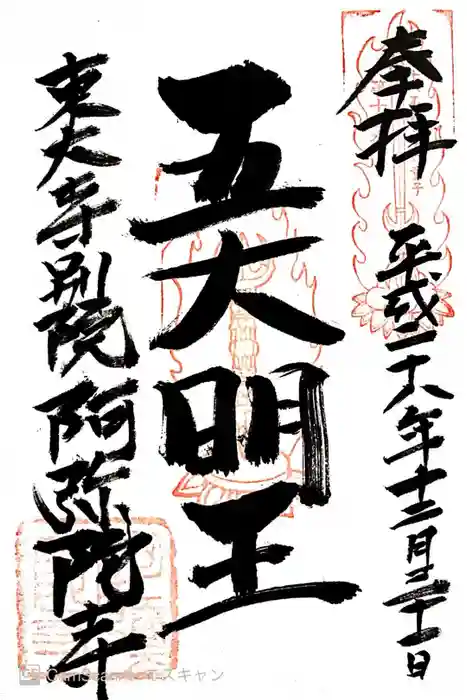 奉拝
平成二十八年十二月二十一日
五大明王
東大寺別院阿弥陀寺
CamScannerでスキャン